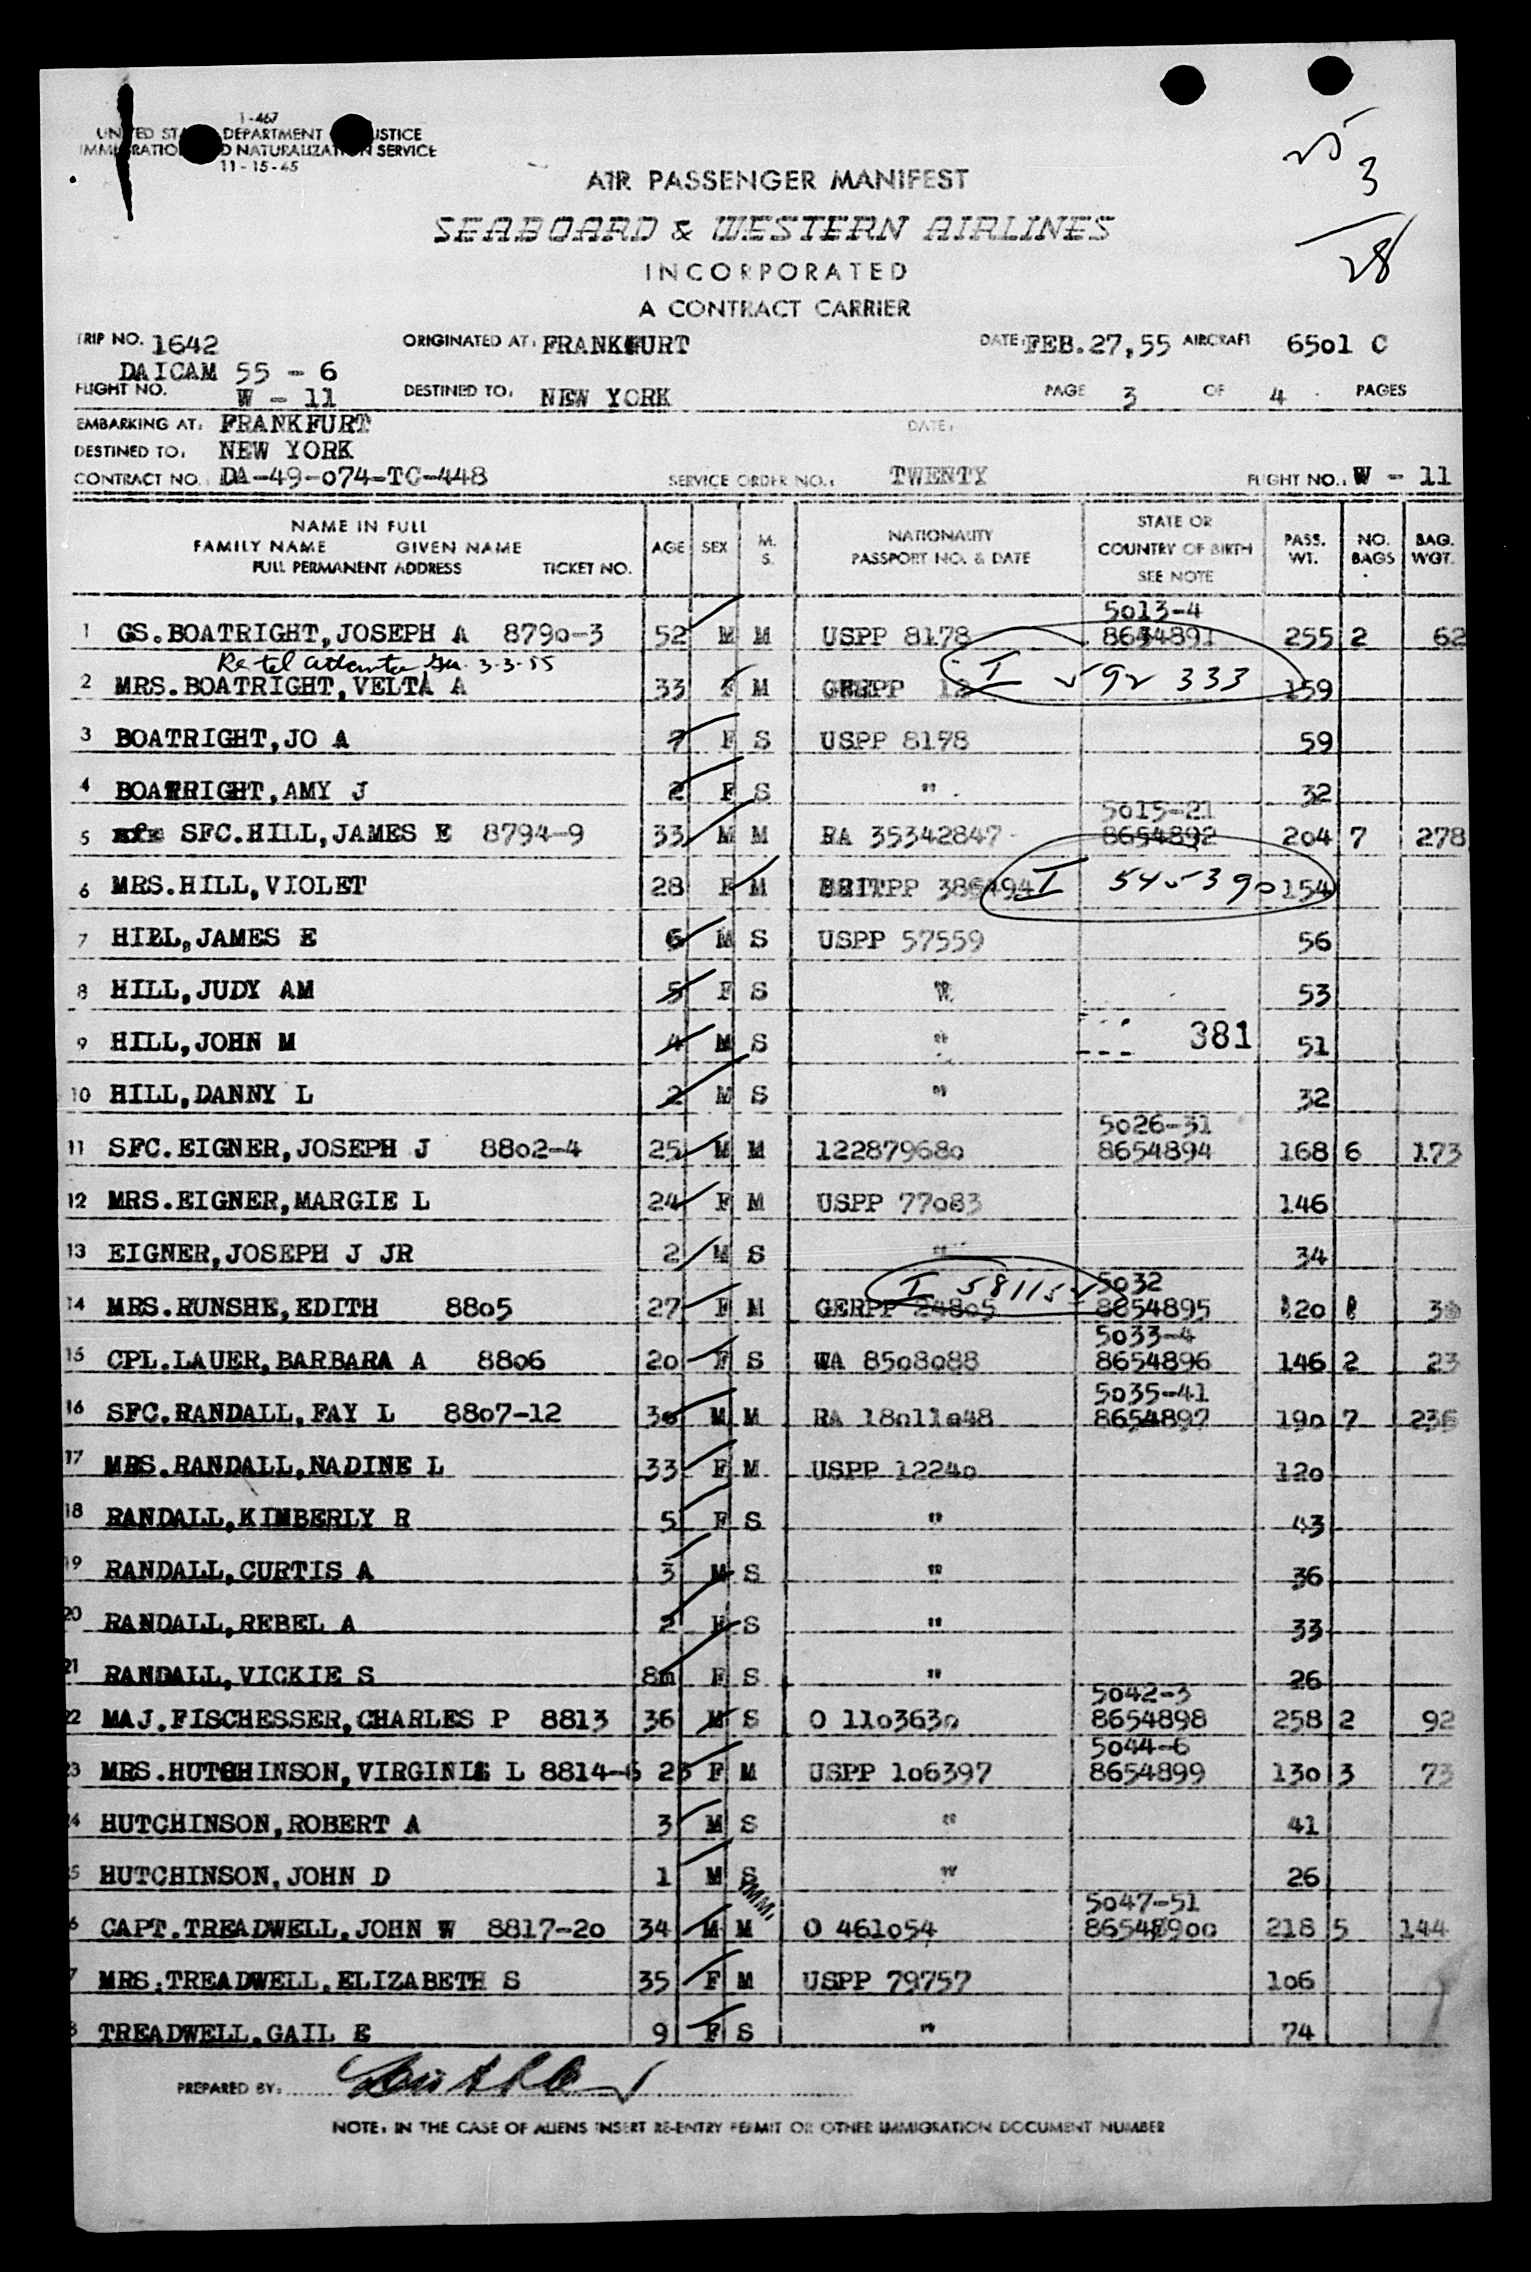 1-467
UNITED STA DEPARTMENT USTICE
IMMIGRATIO D NATURALIZATION SERVICE
11-15-45
25
3
28
AIR PASSENGER MANIFEST
SEABOARD & WESTERN AIRLINES
INCORPORATED
A CONTRACT CARRIER
TRIP NO. 1642 ORIGINATED AT: FRANKFURT DATE: FEB.27,55 AIRCRAFT 6501 C
DAICAM 55 - 6
FLIGHT NO. W - 11 DESTINED TO: NEW YORK PAGE 3 OF 4 PAGES
EMBARKING AT: FRANKFURT DATE:
DESTINED TO: NEW YORK
CONTRACT NO.: DA-49-074-TC-448 SERVICE ORDER NO.: TWENTY FLIGHT NO.: W - 11
NAME IN FULL
FAMILY NAME GIVEN NAME
FULL PERMANENT ADDRESS TICKET NO. AGE SEX M. S. NATIONALITY PASSPORT NO. & DATE STATE OR COUNTRY OF BIRTH SEE NOTE PASS. WT. NO. BAGS BAG. WGT.
5013-4
1 GS.BOATRIGHT,JOSEPH A 8790-3 52 M M USPP 8178 8654891 255 2 62
Re tel Atlanta Ga. 3-3-55
2 MRS.BOATRIGHT,VELTA A 33 F M 12 I 592 333 159
3 BOATRIGHT,JO A 7 F S USPP 8178 59
4 BOATRIGHT,AMY J 2 F S " 32
5015-21
5 SFC.HILL,JAMES E 8794-9 33 M M RA 35342847 8654892 204 7 278
6 MRS.HILL,VIOLET 28 F M BRITPP 386494 I 545390 154
7 HILL,JAMES E 6 M S USPP 57559 56
8 HILL,JUDY AM 5 F S " 53
9 HILL,JOHN M 4 M S " 381 51
10 HILL,DANNY L 2 M S " 32
5026-31
11 SFC.EIGNER,JOSEPH J 8802-4 25 M M 122879680 8654894 168 6 173
12 MRS.EIGNER,MARGIE L 24 F M USPP 77083 146
13 EIGNER,JOSEPH J JR 2 M S " 34
I 5032
14 MRS.RUNSHE,EDITH 8805 27 F M GERPP 24805 8654895 120
5033-4
15 CPL.LAUER,BARBARA A 8806 20 F S WA 8508088 8654896 146 2 23
5035-41
16 SFC.RANDALL,FAY L 8807-12 36 M M RA 18011048 8654897 190 7 236
17 MRS.RANDALL,NADINE L 33 F M USPP 12240 120
18 RANDALL,KIMBERLY R 5 F S " 43
19 RANDALL,CURTIS A 3 M S " 36
20 RANDALL,REBEL A 2 F S " 33
21 RANDALL,VICKIE S 8m F S " 26
5042-3
22 MAJ.FISCHESSER,CHARLES P 8813 36 M S O 1103630 8654898 258 2 92
5044-6
23 MRS.HUTCHINSON,VIRGINIA L 8814-6 23 F M USPP 106397 8654899 130 3 73
24 HUTCHINSON,ROBERT A 3 M S " 41
5 HUTCHINSON,JOHN D 1 M S " 26
IMMI. 5047-51
6 CAPT.TREADWELL,JOHN W 8817-20 34 M M O 461054 8654900 218 5 144
7 MRS.TREADWELL,ELIZABETH S 35 F M USPP 79757 106
8 TREADWELL,GAIL E 9 F S " 74
PREPARED BY:
NOTE: IN THE CASE OF ALIENS INSERT RE-ENTRY PERMIT OR OTHER IMMIGRATION DOCUMENT NUMBER